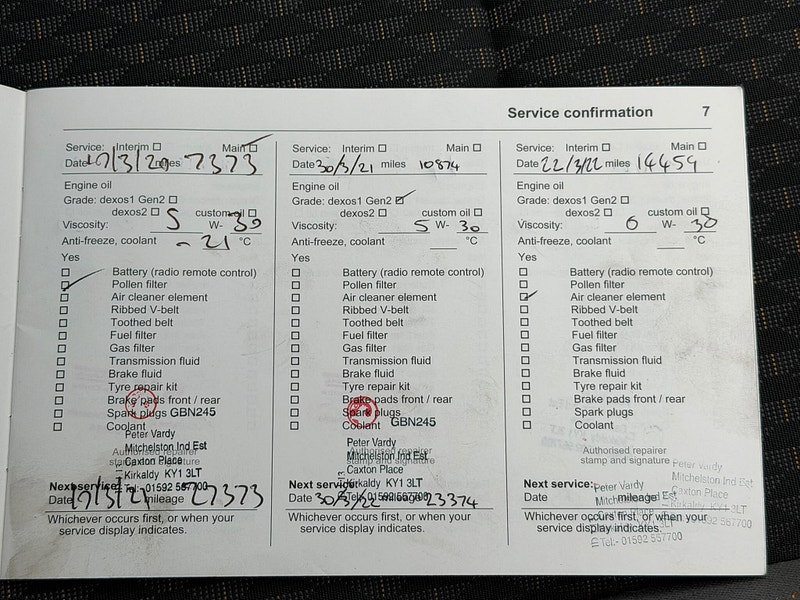 Service confirmation 7
Service: Interim Main
Date 17/3/20 miles 7373
Engine oil
Grade: dexos1 Gen2
dexos2 custom oil
Viscosity: 5 W- 30
Anti-freeze, coolant -21 °C
Yes
Battery (radio remote control)
Pollen filter
Air cleaner element
Ribbed V-belt
Toothed belt
Fuel filter
Gas filter
Transmission fluid
Brake fluid
Tyre repair kit
Brake pads front / rear
Spark plugs GBN245
Coolant
Peter Vardy
Authorised repairer
Mitchelston Ind Est
stamp and signature
Caxton Place
Kirkaldy KY1 3LT
Next service:
Tel:- 01592 557700
Date 17/3/21 mileage 27373
Whichever occurs first, or when your
service display indicates.
Service: Interim Main
Date 30/3/21 miles 10874
Engine oil
Grade: dexos1 Gen2
dexos2 custom oil
Viscosity: 5 W- 30
Anti-freeze, coolant °C
Yes
Battery (radio remote control)
Pollen filter
Air cleaner element
Ribbed V-belt
Toothed belt
Fuel filter
Gas filter
Transmission fluid
Brake fluid
Tyre repair kit
Brake pads front / rear
Spark plugs
Coolant GBN245
Peter Vardy
Authorised repairer
Mitchelston Ind Est
stamp and signature
Caxton Place
Kirkaldy KY1 3LT
Next service:
Tel:- 01592 557700
Date 30/3/22 mileage 23374
Whichever occurs first, or when your
service display indicates.
Service: Interim Main
Date 22/3/22 miles 14459
Engine oil
Grade: dexos1 Gen2
dexos2 custom oil
Viscosity: 0 W- 30
Anti-freeze, coolant °C
Yes
Battery (radio remote control)
Pollen filter
Air cleaner element
Ribbed V-belt
Toothed belt
Fuel filter
Gas filter
Transmission fluid
Brake fluid
Tyre repair kit
Brake pads front / rear
Spark plugs
Coolant
Authorised repairer
stamp and signature
Peter Vardy
Mitchelston Ind Est
Caxton Place
Kirkaldy KY1 3LT
01592 557700
Next service:
Peter Vardy
Date mileage
Tel:- 01592 557700
Whichever occurs first, or when your
service display indicates.